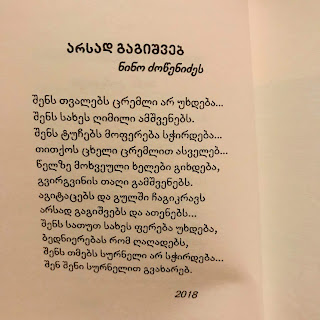 არსად გაგიშვებ
ნინო ძოწენიძეს
შენს თვალებს ცრემლი არ უხდება...
შენს სახეს ღიმილი ამშვენებს.
შენს ტუჩებს მოფერება სჭირდება...
თითქოს ცხელი ცრემლით ასველებ...
წელზე მოხვეული ხელები გიხდება,
გვირგვინის თაღი გამშვენებს.
აგიტაცებს და გულში ჩაგიკრავს
არსად გაგიშვებს და ათენებს...
შენს სათუთ სახეს ფერება უხდება,
ბედნიერებას რომ ღაღადებს,
შენს თმებს სურნელი არ სჭირდება...
შენ შენი სურნელით გვახარებ.
2018